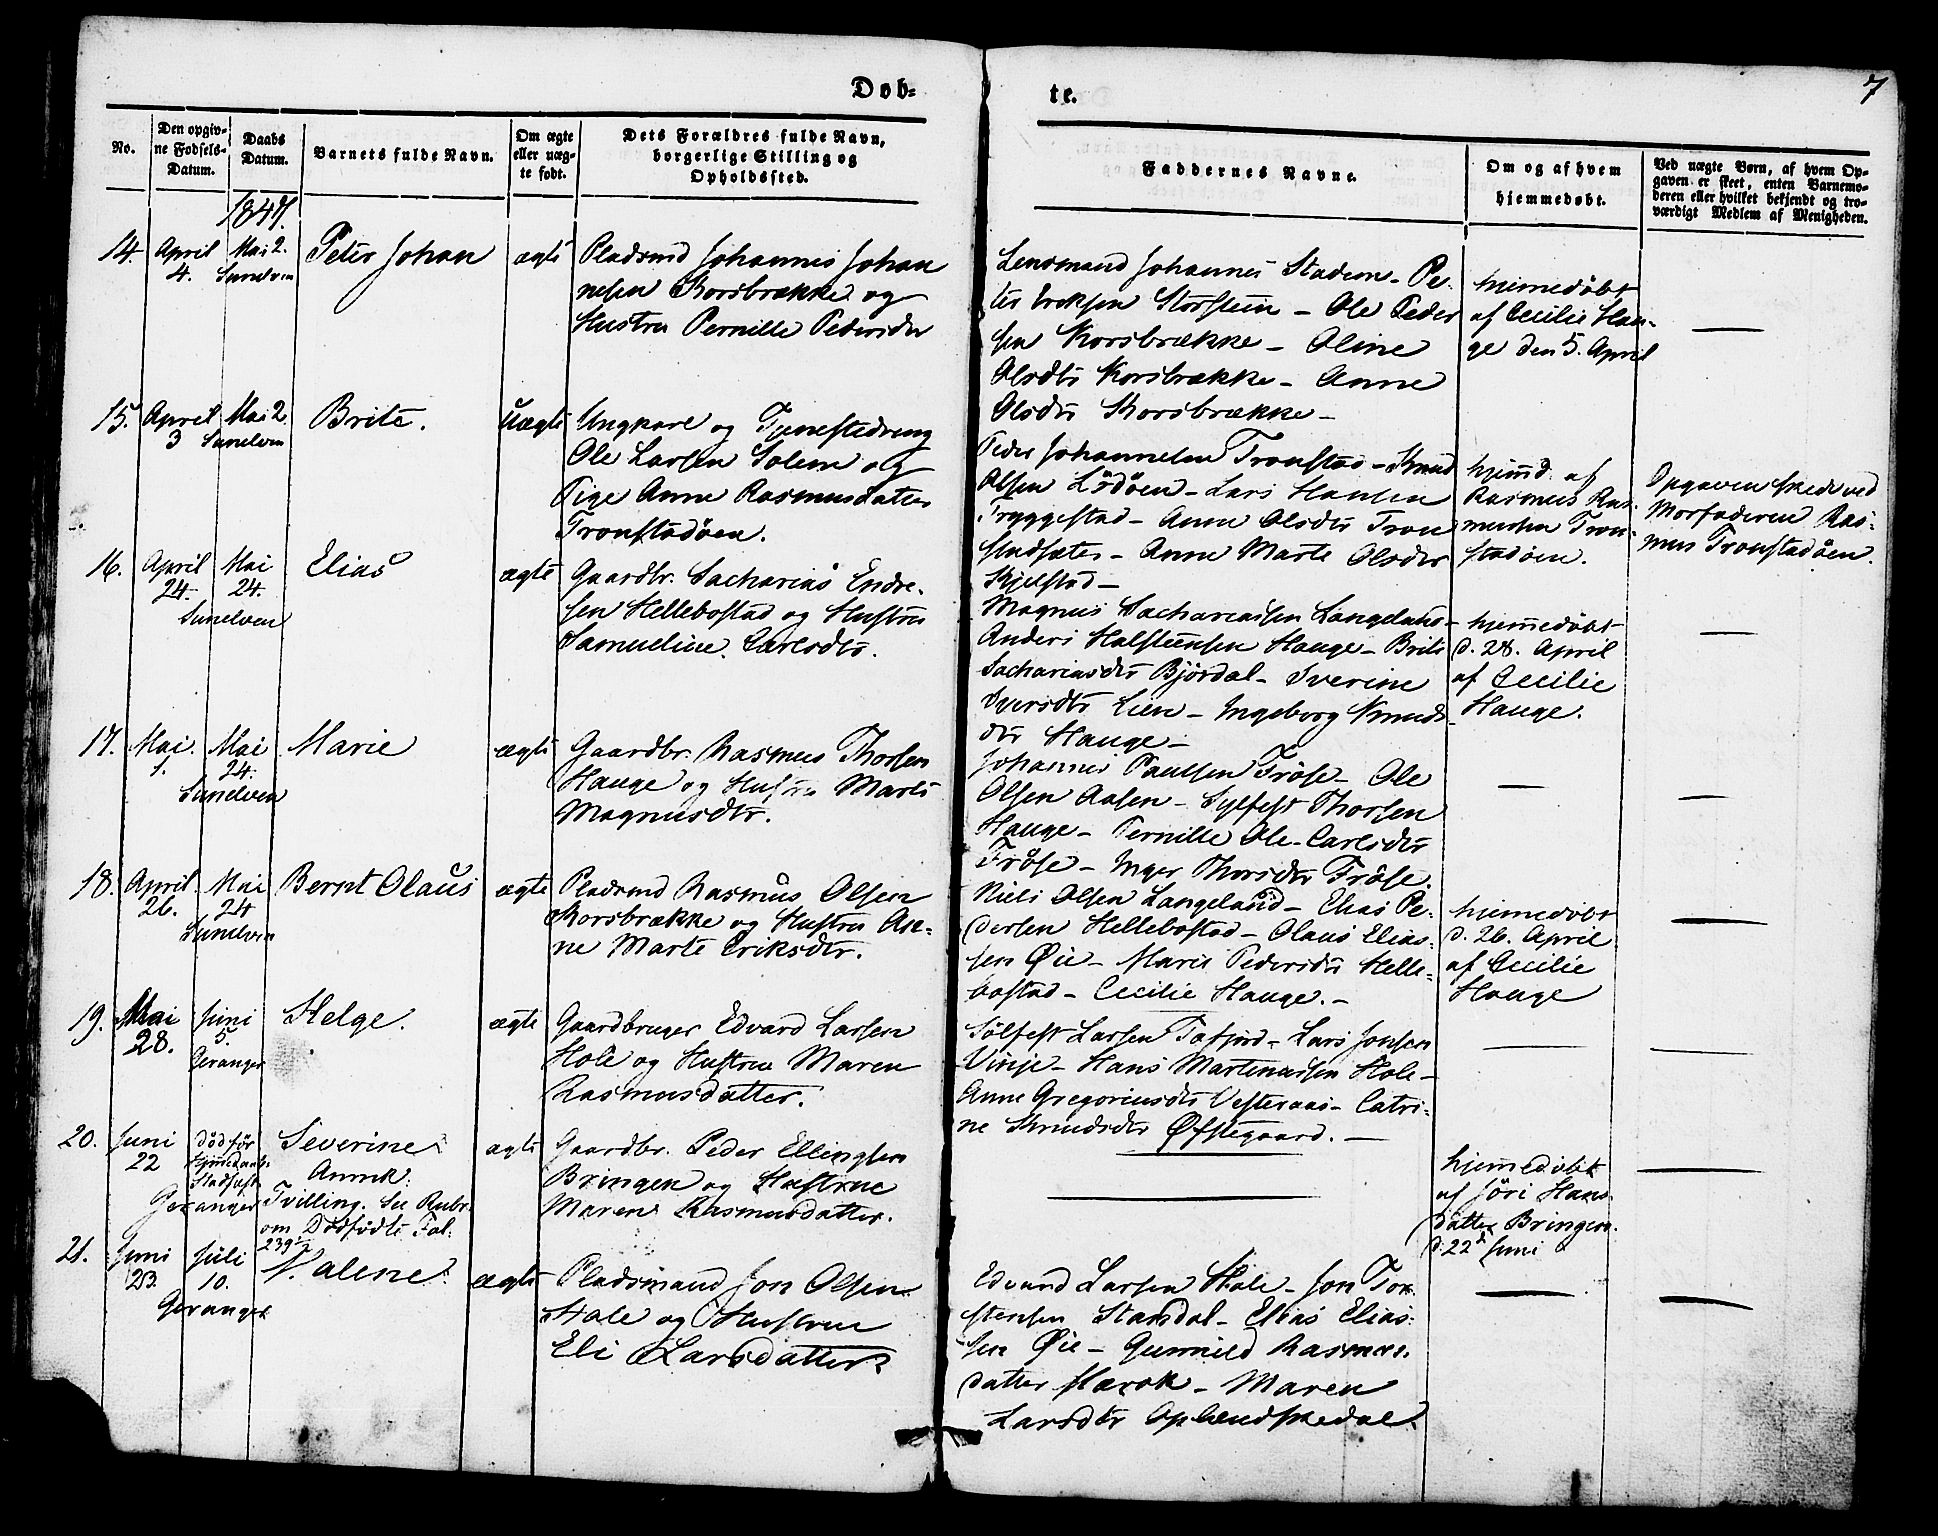 Døb-
te.
7
No.
Den opgiv-
ne Fødsels-
Datum.
Daabs
Datum.
Barnets fulde Navn.
Om ægte
eller uæg-
te født.
Dets Forældres fulde Navn,
borgerlige Stilling og
Opholdssted.
Faddernes Navne.
Om og af hvem
hjemmedøbt.
Ved uægte Børn, af hvem Op-
gaven er skeet, enten Barnemo-
deren eller hvilket bekjendt og tro-
værdigt Medlem af Menigheden.
1847.
14.
April
4.
Mai 2.
Sunelven
Peter Johan
ægte
Pladsmd Johannes Johan
nesen Korsbrække og
Hustru Pernille Pedersdtr
Lensmand Johannes Stadem - Pe-
ter Eriksen Storstein - Ole Peder
sen Korsbrække - Oline
Olsdtr Korsbrække - Anne
Olsdtr Korsbrække -
hjemedøbt
af Cecilie Hau-
ge den 5. April
15.
April
3
Mai 2.
Sunelven
Brite.
Uægte
Ungkarl og Tjenestedreng
Ole Larsen Solem og
Pige Anne Rasmusdatter
Tronstadøen.
Peder Johannesen Tronstad - Knud
Olsen Lödöen - Lars Hansen
Tryggestad - Anne Olsdtr Tron
stadsæter - Anne Marte Olsdtr
Kjelstad -
hjemd. af
Rasmus Ras-
mussen Tron-
stadøen.
Opgaven skede ved
Morfaderen Ras-
mus Tronstadøen.
16.
April
24.
Mai
24.
Sunelven
Elias
ægte
Gaardbr. Sacharias Endre-
sen Hellebostad og Hustru
Samueline Carlsdtr.
Magnus Sachariassen Langeland -
Anders Halsteensen Hauge - Brite
Sachariasdtr Björdal - Iverine
Iversdtr Lien - Ingeborg Knuds
dtr Hauge -
hjemedøbt
d. 28. April
af Cecilie
Hauge.
17.
Mai.
1.
Mai
24.
Sunelven
Marie
ægte
Gaardbr. Rasmus Thorsen
Hauge og Hustru Marte
Magnusdtr.
Johannes Paulsen Fröse - Ole
Olsen Aasen - Sylfest Thorsen
Hauge - Pernille Ole-Carlsdtr
Fröse - Inger Thorsdtr Fröse.
18.
April
26.
Mai
24
Sunelven
Bernt Olaus
ægte
Pladsmd Rasmus Olsen
Korsbrække og Hustru An-
ne Marte Eriksdtr.
Niels Olsen Langeland - Elias Pe-
dersen Hellebostad - Olaus Elias-
sen Øie - Marie Pedersdtr Helle-
bostad - Cecilie Hauge. -
hjemedøbt
d. 26. April
af Cecilie
Hauge
19.
Mai
28.
Juni
5.
Geranger
Helge.
ægte
Gaardbruger Edvard Larsen
Hole og Hustrue Maren
Rasmusdatter.
Sölfest Larsen Tafjord - Lars Jonsen
Vinje - Hans Martinussen Hole -
Anne Gregoriusdtr Vesteraas - Catri-
ne Knudsdtr Øfstegaard. -
20.
Juni
22
død för
Hjemedaab.
Stadfæst.
Geranger
Severine
Annik:
Tvilling. See Rubr.
om Dödfödte Fol.
239
ægte
Gaardbr. Peder Ellingsen
Bringen og Hustrue
Maren Rasmusdatter.
hjemedøbt
af Jöri Hans-
datter Bringen.
d. 22d Juni
21.
Juni
23.
Juli
10.
Geranger
Valene
ægte
Pladsmand Jon Olsen
Hole og Hustrue
Eli Larsdatter
Edvard Larsen Hole - Jon Tor-
stensen Standal - Elias Elias-
sen Øie - Gunnild Rasmus-
datter Hærok - Maren
Larsdtr Oplændskedal.